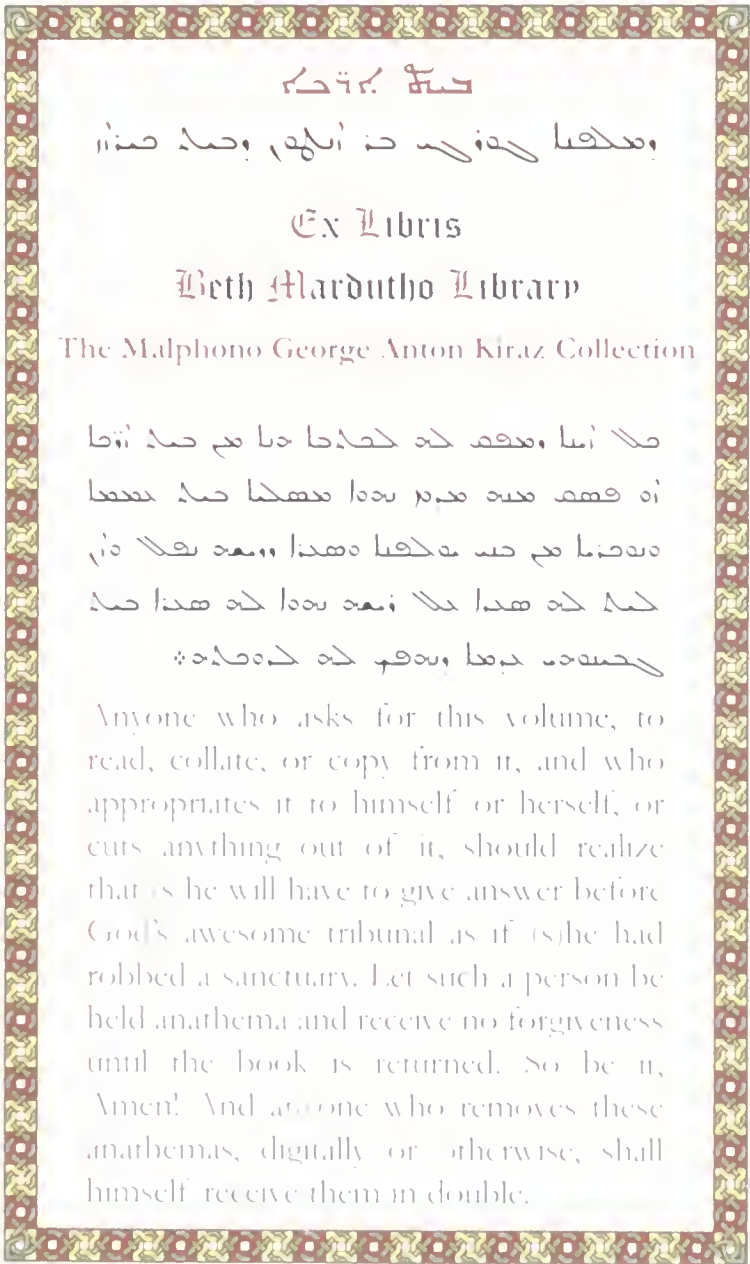 ܒܝܬ ܐܪ̈ܟܐ
ܕܡܠܦܢܐ ܓܘܪܓܝ ܒܪ ܐܢܛܘܢ ܕܒܝܬ
Ex Libris
Beth Mardutho Library
The Malphono George Anton Kiraz Collection
ܟܠ ܐܝܢܐ ܕܡܦܩ ܠܗ ܠܟܬܒܐ ܗܢܐ ܡܢ ܒܝܬ ܐܪ̈ܟܐ
ܐܘ ܦܣܩ ܡܢܗ ܡܕܡ ܢܗܘܐ ܡܣܠܝܐ ܒܝܬ ܥܡܡܐ
ܘܢܘܟܪܝܐ ܡܢ ܒܢܝ ܝܘܠܦܢܐ ܘܣܥܪܐ ܕܪܝܫܗ ܢܦܠ ܘܐܢ
ܠܝܬ ܠܗ ܣܥܪܐ ܥܠ ܪܝܫܗ ܢܗܘܐ ܠܗ ܣܥܪܐ ܒܝܬ
ܓܒܝܢܘܗܝ ܥܕܡܐ ܕܢܗܦܟ ܠܗ ܠܕܘܟܬܗ܀
Anyone who asks for this volume, to
read, collate, or copy from it, and who
appropriates it to himself or herself, or
cuts anything out of it, should realize
that (s)he will have to give answer before
God's awesome tribunal as if (s)he had
robbed a sanctuary. Let such a person be
held anathema and receive no forgiveness
until the book is returned. So be it,
Amen! And anyone who removes these
anathemas, digitally or otherwise, shall
himself receive them in double.